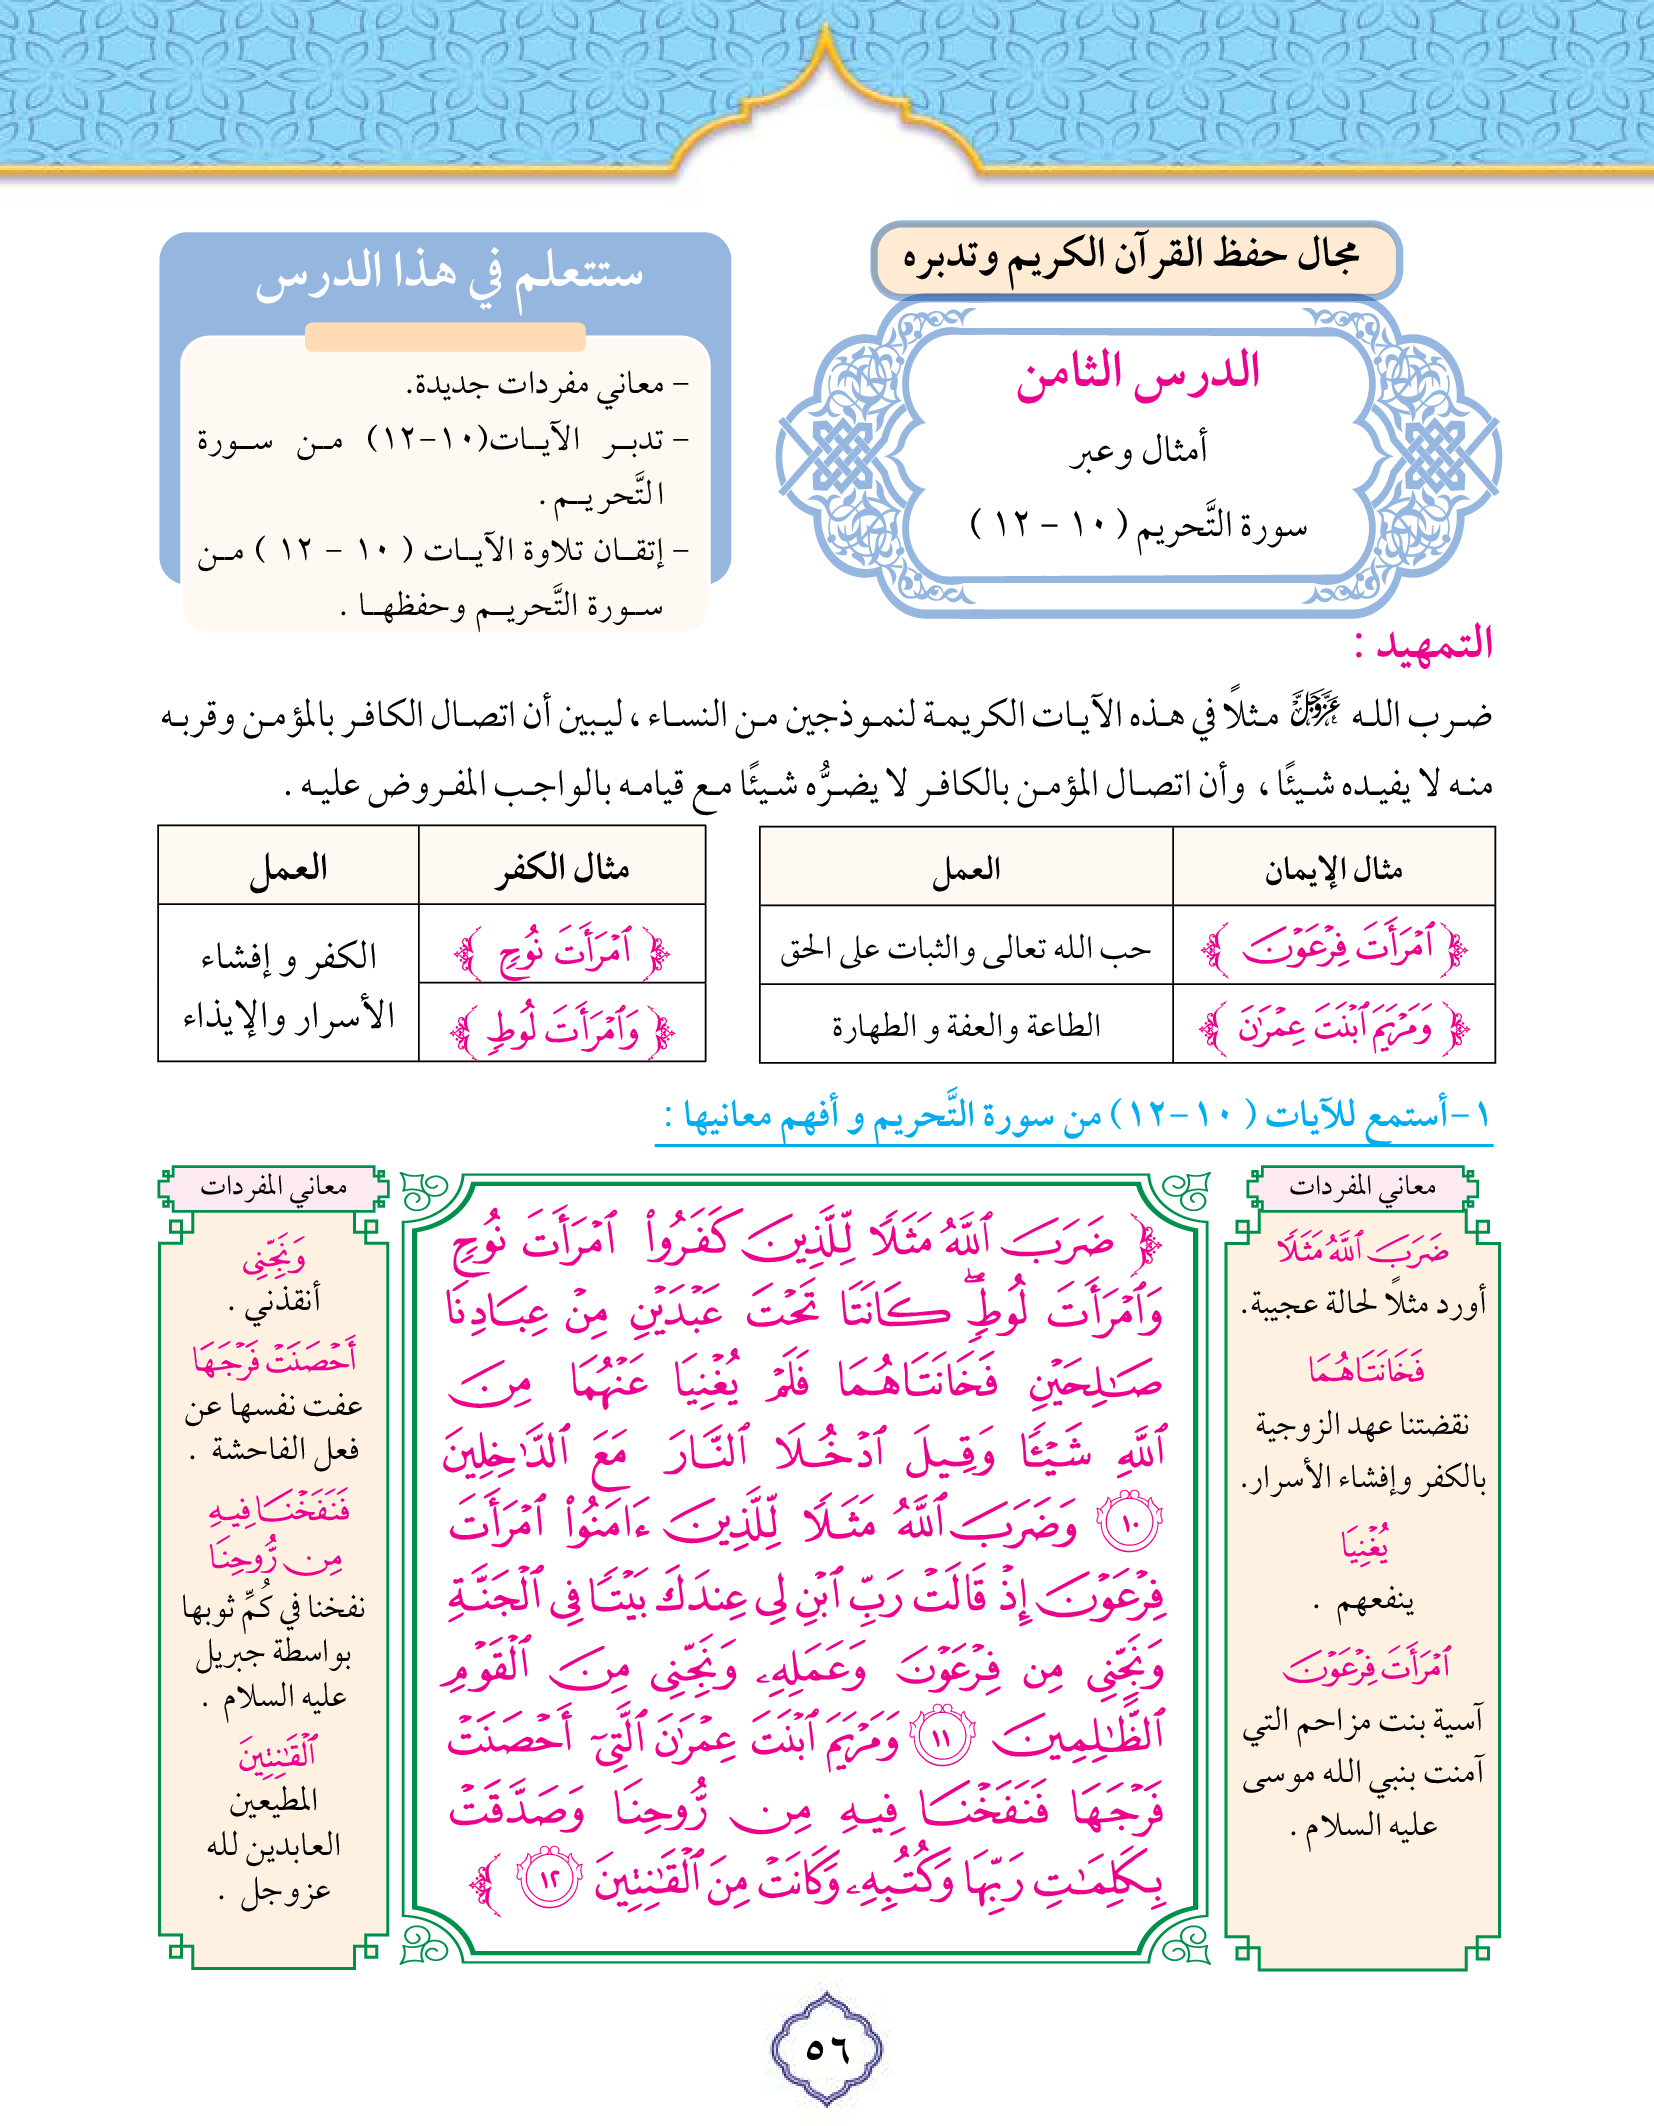 مجال حفظ القرآن الكريم وتدبره
الدرس الثامن
أمثال وعبر
سورة التَّحريم ( ١٠ - ١٢ )
ستتعلم في هذا الدرس
- معاني مفردات جديدة.
- تدبر الآيات(١٠-١٢) من سورة
التَّحريم .
- إتقان تلاوة الآيات ( ١٠ - ١٢ ) من
سورة التَّحريم وحفظها .
التمهيد :
ضرب الله عَزَّوَجَلَّ مثلاً في هذه الآيات الكريمة لنموذجين من النساء ، ليبين أن اتصال الكافر بالمؤمن وقربه
منه لا يفيده شيئًا ، وأن اتصال المؤمن بالكافر لا يضرُّه شيئًا مع قيامه بالواجب المفروض عليه .
مثال الإيمان العمل
﴿ ٱمْرَأَتَ فِرْعَوْنَ ﴾ حب الله تعالى والثبات على الحق
﴿ وَمَرْيَمَ ٱبْنَتَ عِمْرَٰنَ ﴾ الطاعة والعفة و الطهارة
مثال الكفر العمل
﴿ ٱمْرَأَتَ نُوحٍ ﴾ الكفر و إفشاء
﴿ وَٱمْرَأَتَ لُوطٍ ﴾ الأسرار والإيذاء
١-أستمع للآيات ( ١٠-١٢) من سورة التَّحريم و أفهم معانيها :
معاني المفردات
ضَرَبَ ٱللَّهُ مَثَلًا
أورد مثلاً لحالة عجيبة.
فَخَانَتَاهُمَا
نقضتنا عهد الزوجية
بالكفر وإفشاء الأسرار.
يُغْنِيَا
ينفعهم .
ٱمْرَأَتَ فِرْعَوْنَ
آسية بنت مزاحم التي
آمنت بنبي الله موسى
عليه السلام .
﴿ ضَرَبَ ٱللَّهُ مَثَلًا لِّلَّذِينَ كَفَرُوا۟ ٱمْرَأَتَ نُوحٍ
وَٱمْرَأَتَ لُوطٍ ۖ كَانَتَا تَحْتَ عَبْدَيْنِ مِنْ عِبَادِنَا
صَٰلِحَيْنِ فَخَانَتَاهُمَا فَلَمْ يُغْنِيَا عَنْهُمَا مِنَ
ٱللَّهِ شَيْـًٔا وَقِيلَ ٱدْخُلَا ٱلنَّارَ مَعَ ٱلدَّٰخِلِينَ
١٠ وَضَرَبَ ٱللَّهُ مَثَلًا لِّلَّذِينَ ءَامَنُوا۟ ٱمْرَأَتَ
فِرْعَوْنَ إِذْ قَالَتْ رَبِّ ٱبْنِ لِى عِندَكَ بَيْتًا فِى ٱلْجَنَّةِ
وَنَجِّنِى مِن فِرْعَوْنَ وَعَمَلِهِۦ وَنَجِّنِى مِنَ ٱلْقَوْمِ
ٱلظَّٰلِمِينَ ١١ وَمَرْيَمَ ٱبْنَتَ عِمْرَٰنَ ٱلَّتِىٓ أَحْصَنَتْ
فَرْجَهَا فَنَفَخْنَا فِيهِ مِن رُّوحِنَا وَصَدَّقَتْ
بِكَلِمَٰتِ رَبِّهَا وَكُتُبِهِۦ وَكَانَتْ مِنَ ٱلْقَٰنِتِينَ ١٢ ﴾
معاني المفردات
وَنَجِّنِى
أنقذني .
أَحْصَنَتْ فَرْجَهَا
عفت نفسها عن
فعل الفاحشة .
فَنَفَخْنَا فِيهِ
مِن رُّوحِنَا
نفخنا في كُمِّ ثوبها
بواسطة جبريل
عليه السلام .
ٱلْقَٰنِتِينَ
المطيعين
العابدين لله
عزوجل .
٥٦